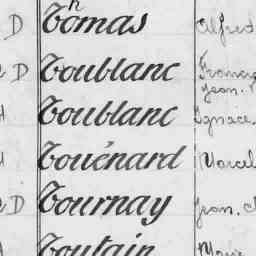 D Thomas Alfred
D Toublanc François
Jean.
Toublanc Ignace.
Touénard Marcel
D Tournay Jean.
Toutain Marie